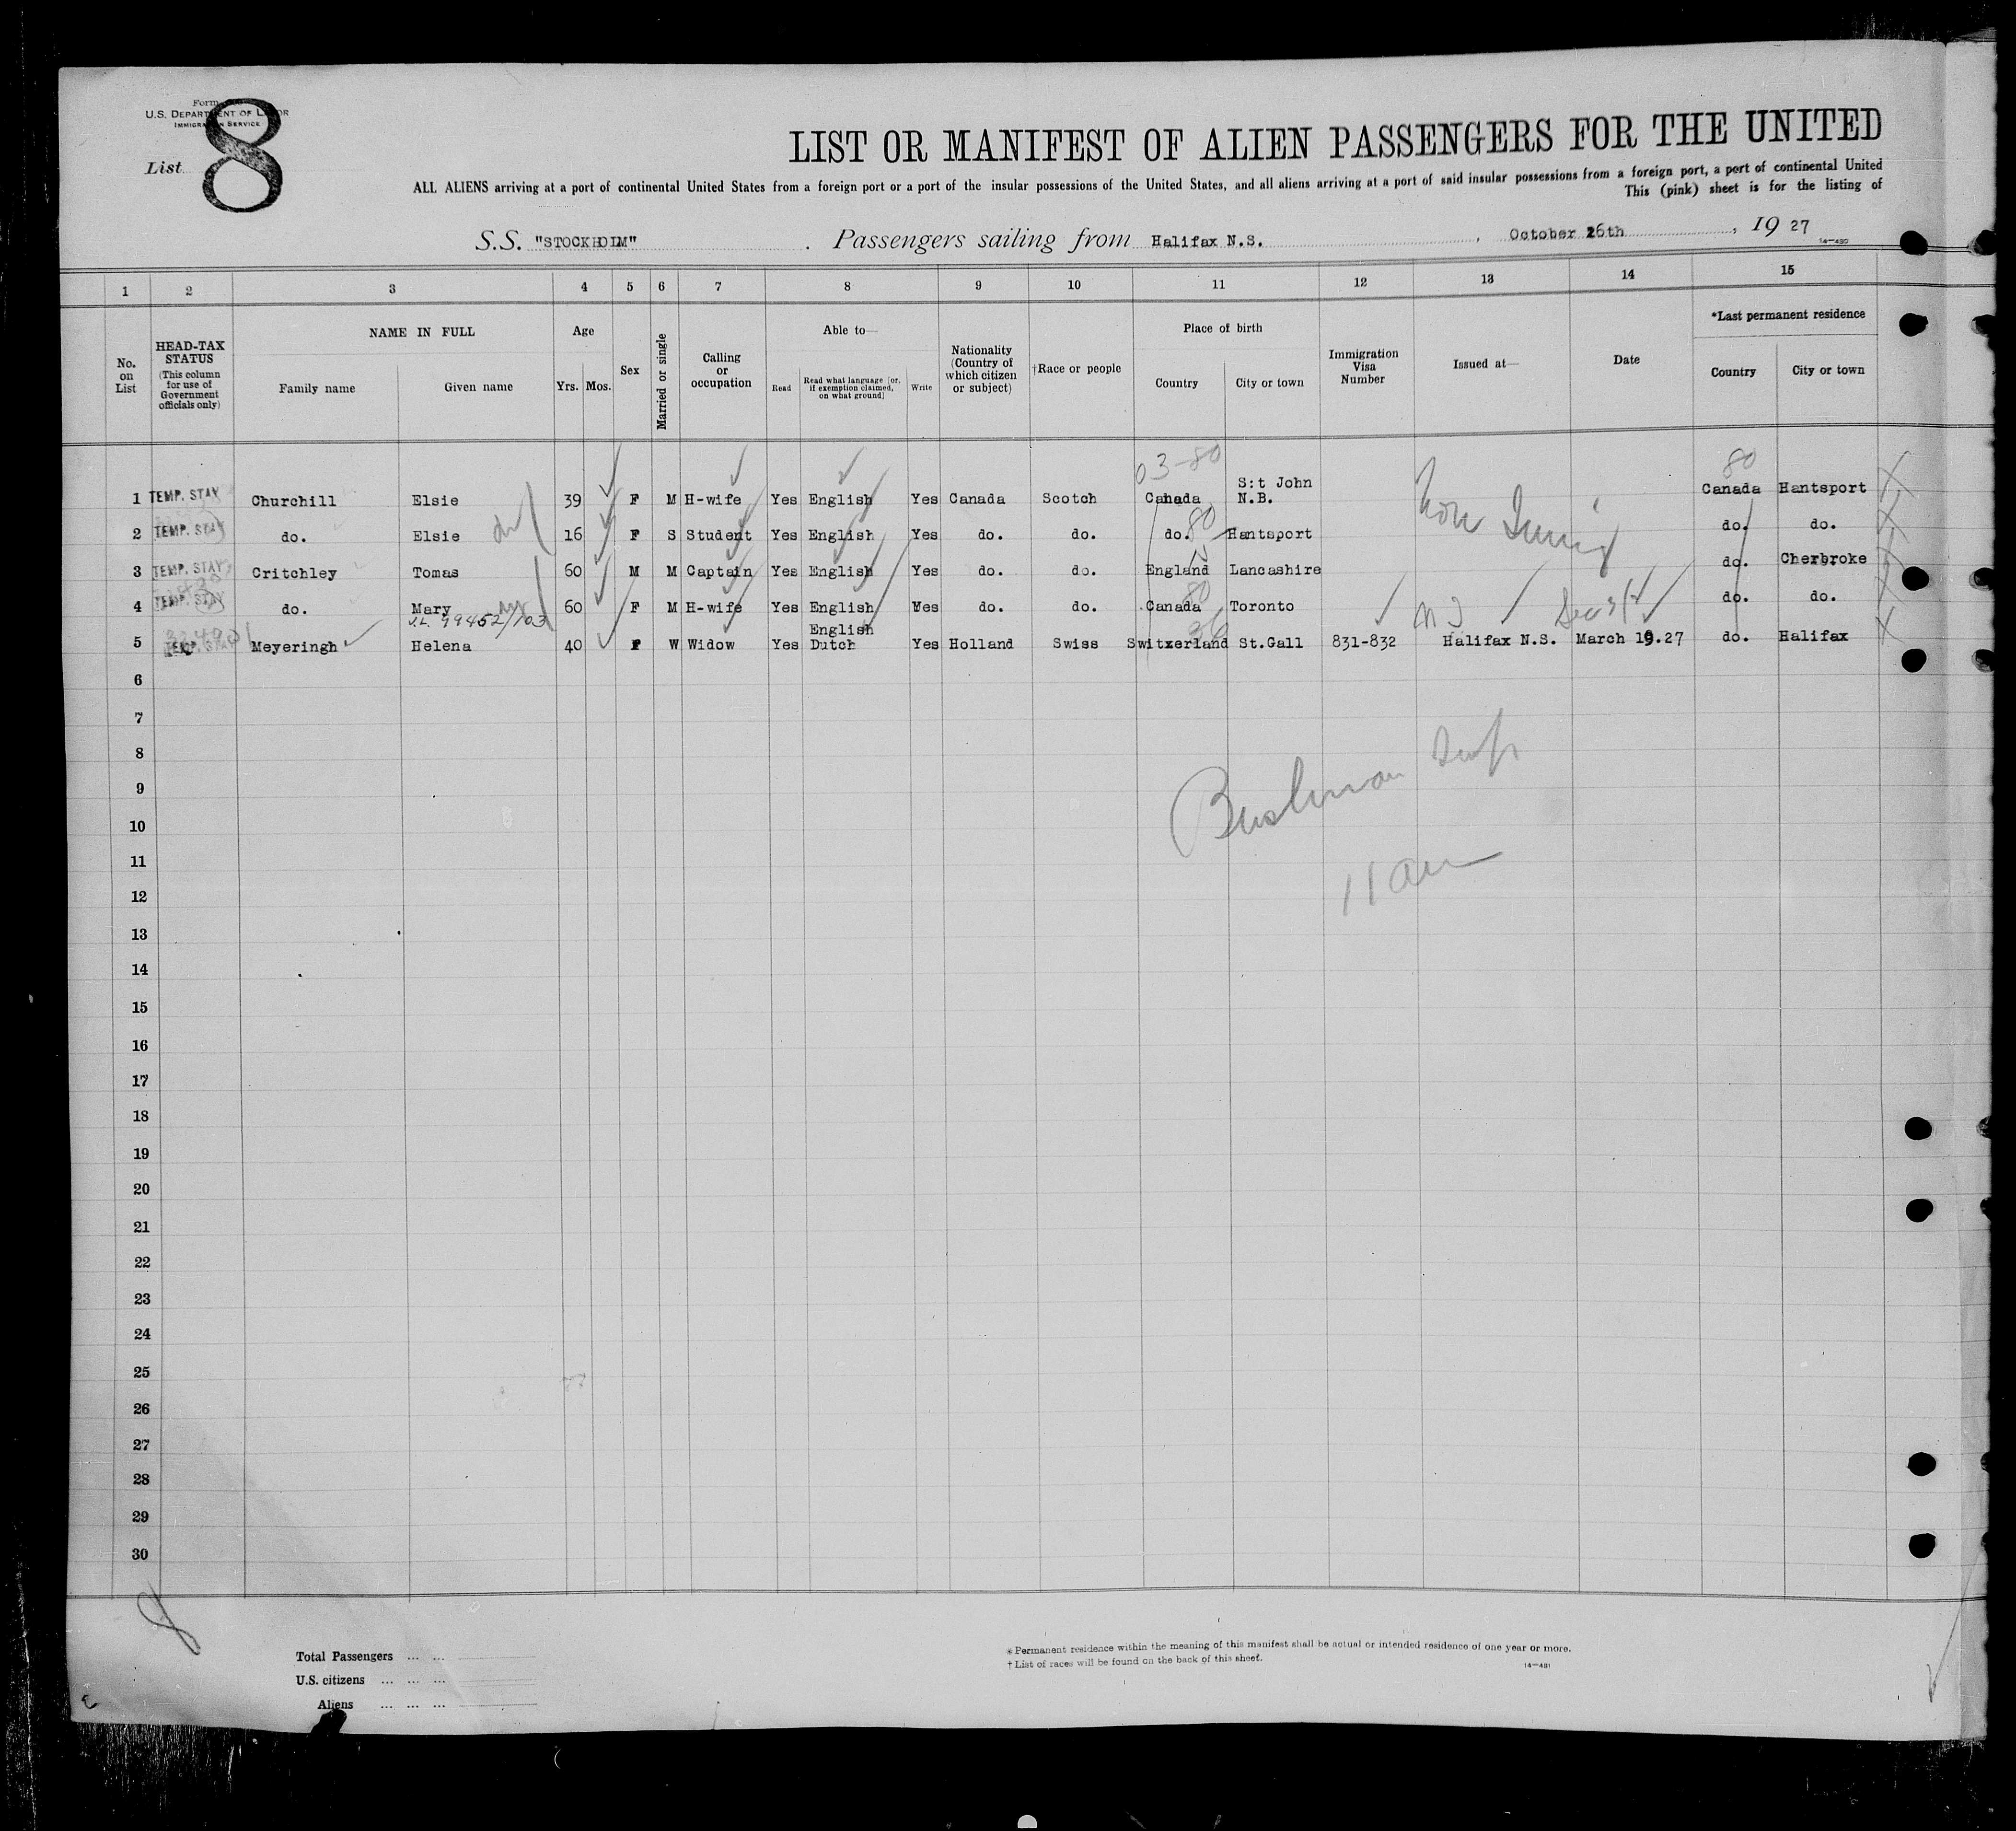 Form
U.S. DEPARTMENT OF LABOR
IMMIGRATION SERVICE
List 8
LIST OR MANIFEST OF ALIEN PASSENGERS FOR THE UNITED
ALL ALIENS arriving at a port of continental United States from a foreign port or a port of the insular possessions of the United States, and all aliens arriving at a port of said insular possessions from a foreign port, a port of continental United
This (pink) sheet is for the listing of
S.S. "STOCKHOLM" . Passengers sailing from Halifax N.S. , October 26th , 19 27
14—430
1 2 3 4 5 6 7 8 9 10 11 12 13 14 15
No. on List
HEAD-TAX STATUS (This column for use of Government officials only)
NAME IN FULL
Family name Given name
Age
Yrs. Mos.
Sex
Married or single
Calling or occupation
Able to—
Read Read what language (or, if exemption claimed, on what ground) Write
Nationality (Country of which citizen or subject)
†Race or people
Place of birth
Country City or town
Immigration Visa Number
Issued at—
Date
*Last permanent residence
Country City or town
03-80 80
1 TEMP. STAY Churchill Elsie 39 F M H-wife Yes English Yes Canada Scotch Canada S:t John N.B. Canada Hantsport
2 TEMP. STAY do. Elsie 16 F S Student Yes English Yes do. do. do. 80 Hantsport do. do.
3 TEMP. STAY Critchley Tomas 60 M M Captain Yes English Yes do. do. England Lancashire do. Cherbroke
4 TEMP. STAY do. Mary 60 F M H-wife Yes English Yes do. do. Canada 80 Toronto do. do.
5 TEMP. STAY Meyeringh Helena 40 F W Widow Yes English Dutch Yes Holland Swiss Switzerland 36 St.Gall 831-832 Halifax N.S. March 19.27 do. Halifax
6
7
8
9
10
11
12
13
14
15
16
17
18
19
20
21
22
23
24
25
26
27
28
29
30
11 am
8
Total Passengers ... ...
U.S. citizens ... ... ...
Aliens ... ... ...
*Permanent residence within the meaning of this manifest shall be actual or intended residence of one year or more.
†List of races will be found on the back of this sheet.
14—431